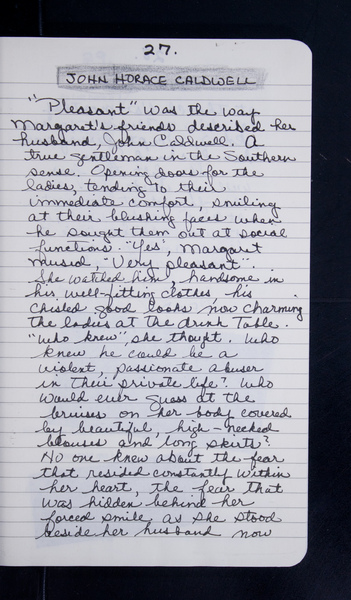 27.
JOHN HORACE CALDWELL
"Pleasant" was the way
Margaret's friends described her
husband, John Caldwell. A
true gentleman in the Southern
sense. Opening doors for the
ladies, tending to their
immediate comfort, smiling
at their blushing faces when
he sought them out at social
functions. "Yes", Margaret
mused, "Very pleasant".
She watched him, handsome in
his well-fitting clothes, his
chisled good looks now charming
the ladies at the drink table.
"Who knew", she thought. Who
knew he could be a
violent, passionate abuser
in their private life? Who
would ever guess at the
bruises on her body covered
by beautiful high-necked
blouses and long skirts?
No one knew about the fear
that resided constantly within
her heart, the fear that
was hidden behind her
forced smile as she stood
beside her husband now